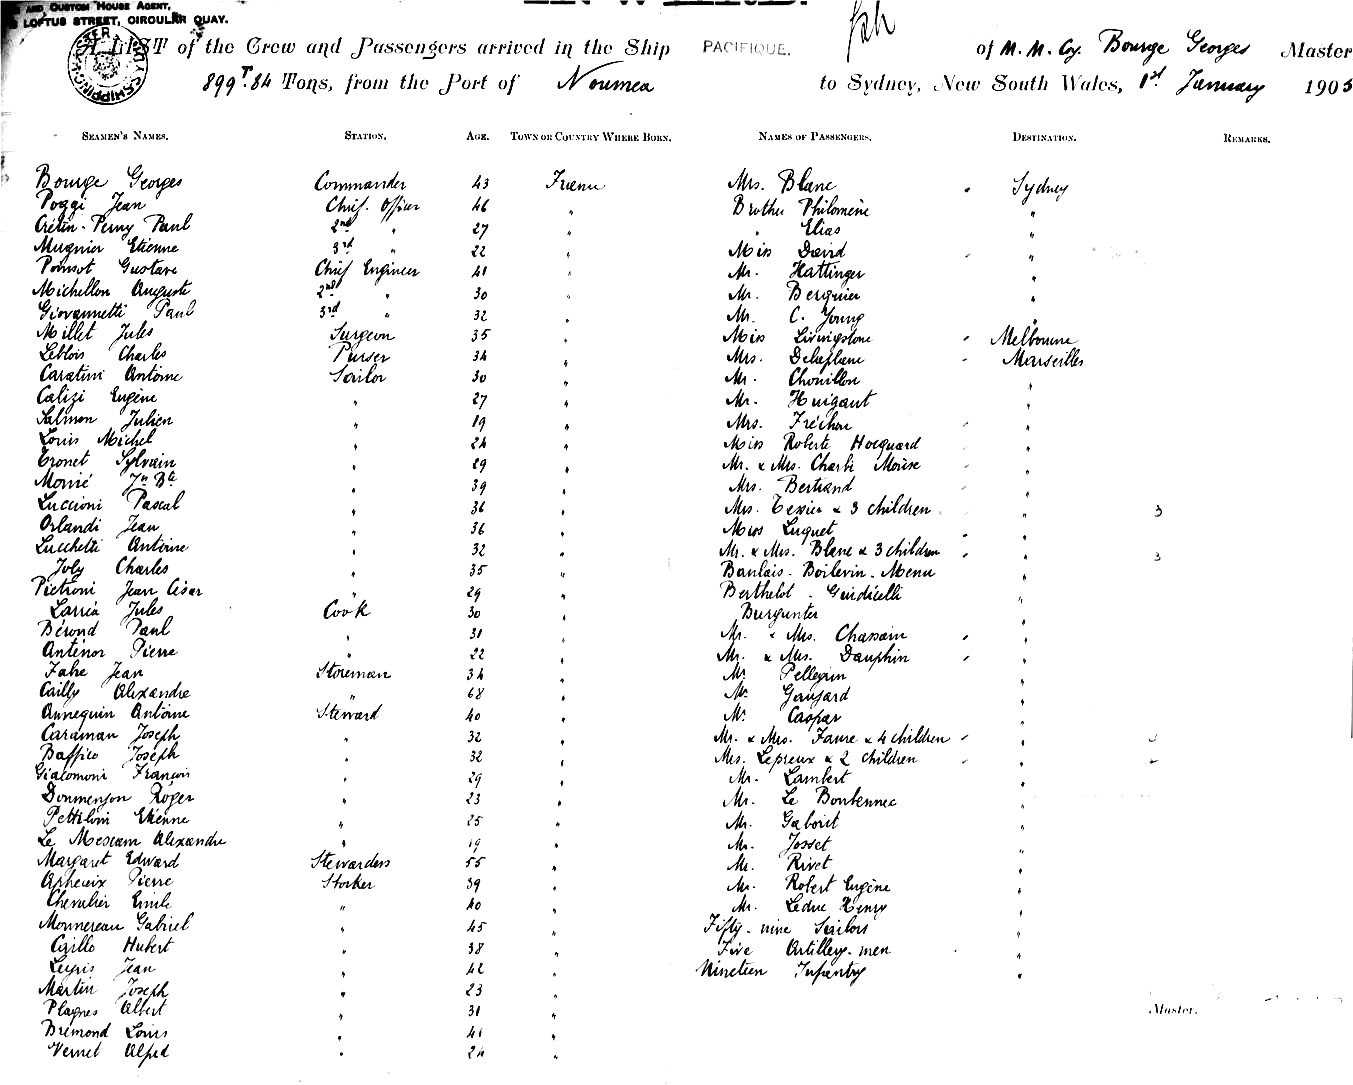 AND CUSTOM HOUSE AGENT,
LOFTUS STREET, CIRCULAR QUAY.
A LIST of the Crew and Passengers arrived in the Ship PACIFIQUE. of M. M. Cy. Bourge Georges Master
899 T. 84 Tons, from the Port of Noumea to Sydney, New South Wales, 1st January 1905
SEAMEN'S NAMES. STATION. AGE. TOWN OR COUNTRY WHERE BORN. NAMES OF PASSENGERS. DESTINATION. REMARKS.
Bourge Georges Commander 43 France Mrs. Blanc Sydney
Poggi Jean Chief. Officer 46 " Brother Philomene "
Crétin-Perny Paul 2nd " 27 " " Elias "
Mugnier Etienne 3rd " 22 " Miss David "
Poinsot Gustave Chief Engineer 41 " Mr. Hattinger "
Michellon Auguste 2nd " 30 " Mr. Berquier "
Giovannetti Paul 3rd " 32 " Mr. C. Young "
Millet Jules Surgeon 35 " Miss Livingstone Melbourne
Leblois Charles Purser 34 " Mrs. Marseilles
Caratini Antoine Sailor 30 " Mr. Chouillon "
Calizi Eugène " 27 " Mr. Huigaut "
Salmon Julien " 19 " Mrs. Fréchou "
Louis Michel " 24 " Miss Roberte Hocquard "
Tronet Sylvain " 29 " Mr. & Mrs. Moïse "
Morié Jn Bte " 39 " Mrs. Bertrand "
Luccioni Pascal " 36 " Mrs. Texier & 3 children " 3
Orlandi Jean " 36 " Miss Luquet "
Lucchetti Antoine " 32 " Mr. & Mrs. Blanc & 3 children " 3
Joly Charles " 35 " Banlais - Boilevin - Menu "
Pietroni Jean César " 29 " Berthelot - Guidicelli "
Larria Jules Cook 30 " Burgunter "
Bérond Paul " 31 " Mr. & Mrs. Chassain "
Antenor Pierre " 22 " Mr. & Mrs. Dauphin "
Fahe Jean Storeman 34 " Mr. Pellegrin "
Cailly Alexandre " 68 " Mr. Gansard "
Annequin Antoine Steward 40 " Mr. Caspar "
Caraman Joseph " 32 " Mr. & Mrs. Faure & 4 children "
Baffico Joseph " 32 " Mrs. Lepreux & 2 children "
Giacomoni François " 29 " Mr. Lambert "
Donmenjon Roger " 23 " Mr. Le Bontennec "
Pettiloni Etienne " 25 " Mr. Gaborit "
Le Mescam Alexandre " 19 " Mr. Josset "
Margaret Edward Stewardess 55 " Mr. Rivet "
Pierre Stocker 39 " Mr. Robert Eugène "
Chevalier Emile " 40 " Mr. Leduc Henry "
Monnereau Gabriel " 45 " Fifty-nine Sailors "
Cirillo Hubert " 38 " Five Artillery-men "
Leyris Jean " 42 " Nineteen Infantry "
Martin Joseph " 23 "
Plagnes Albert " 31 " Master.
Brémond Louis " 41 "
Vernet Alfred " 24 "